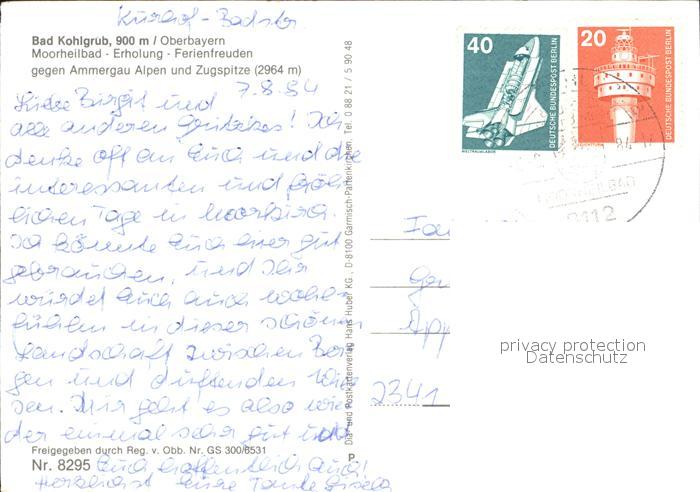 Kurhof - Badstr
Bad Kohlgrub, 900 m / Oberbayern
Moorheilbad - Erholung - Ferienfreuden
gegen Ammergau Alpen und Zugspitze (2964 m)
7.8.84
Liebe Birgit und
alle anderen! Ich
denke oft an Euch und die
interessanten und fröh-
lichen Tage in
Ich könnte Euch hier gut
gebrauchen, und Ihr
würdet Euch auch wohl-
fühlen in dieser schönen
Landschaft zwischen Ber-
gen und duftenden Wie-
sen. Mir geht es also wie-
der einmal sehr gut und
Euch hoffentlich auch!
Herzlichst Eure Tante Gisela
Freigegeben durch Reg. v. Obb. Nr. GS 300/6531
Nr. 8295
Die- und Postkartenverlag Hans Huber KG., D-8100 Garmisch-Partenkirchen, Tel. 0 88 21 / 5 90 48
P
40
DEUTSCHE BUNDESPOST BERLIN
WELTRAUMLABOR
20
DEUTSCHE BUNDESPOST BERLIN
LEUCHTTURM
84
8112
Fa
App
2341
privacy protection
Datenschutz